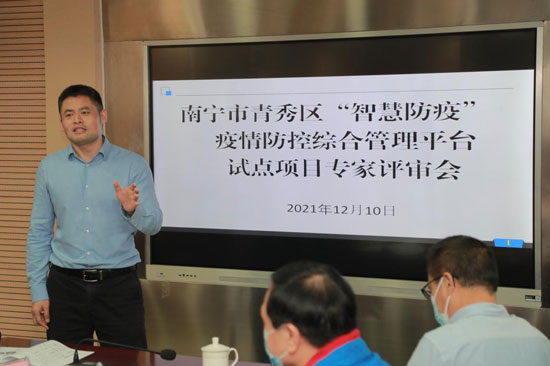 南宁市青秀区“智慧防疫”
疫情防控综合管理平台
试点项目专家评审会
2021年12月10日